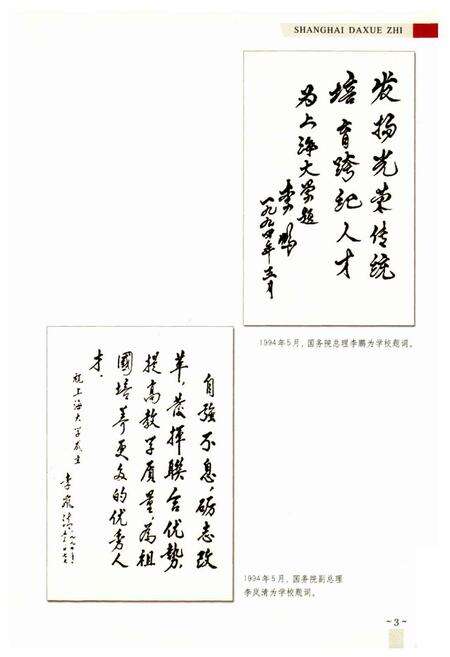 SHANGHAI DAXUE ZHI
发扬光荣传统
培育跨纪人才
为上海大学题
李鹏
一九九四年五月
1994年5月，国务院总理李鹏为学校题词。
自强不息，砺志改
革，發揮联合优勢，
提高教学质量，為祖
國培养更多的优秀人
才。
祝上海大学成立
李嵐清
1994年5月，国务院副总理
李岚清为学校题词。
~3~